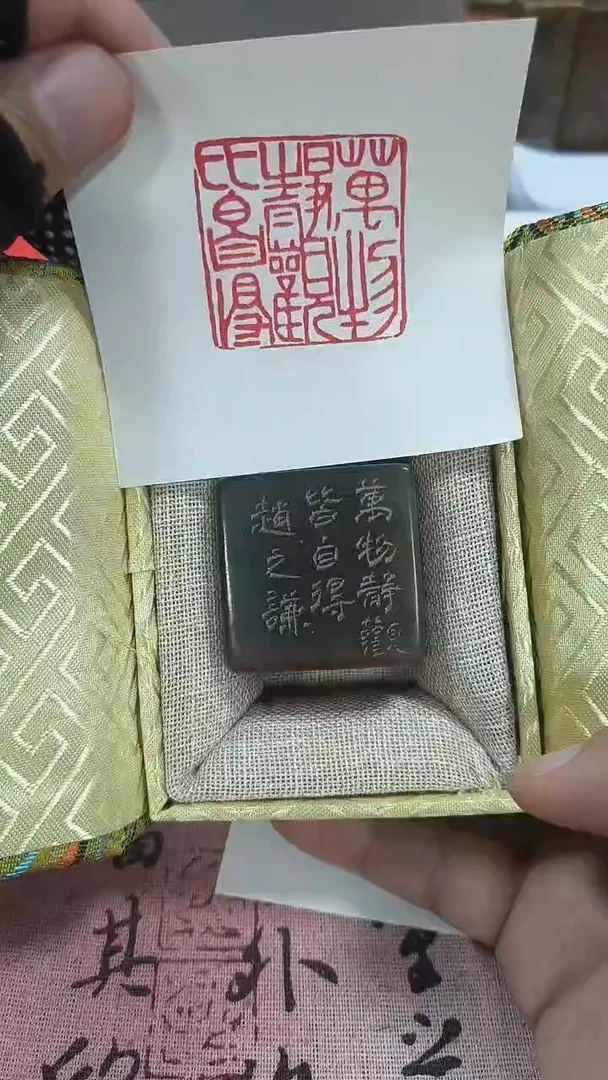 萬物
靜觀
皆自得
萬物靜觀
皆自得
趙之謙
其
卦